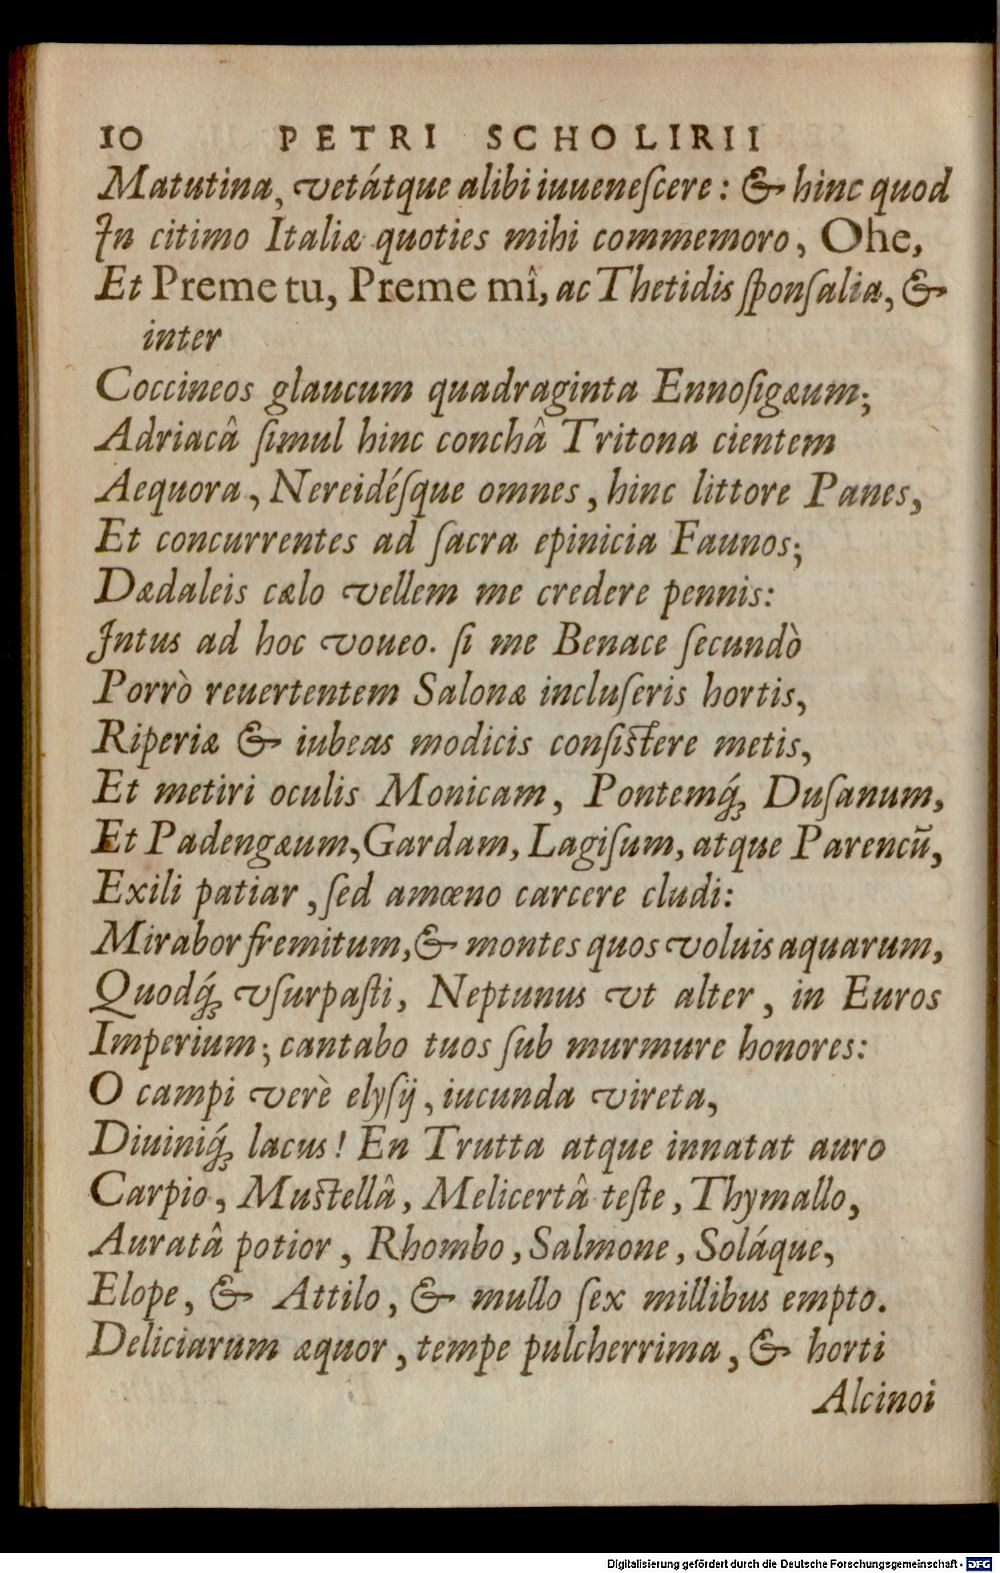 10 PETRI SCHOLIRII
Matutina, vetátque alibi iuuenescere: & hinc quod
In citimo Italiæ quoties mihi commemoro, Ohe,
Et Preme tu, Preme mî, ac Thetidis sponsalia, &
inter
Coccineos glaucum quadraginta Ennosigæum;
Adriacâ simul hinc conchâ Tritona cientem
Aequora, Nereidésque omnes, hinc littore Panes,
Et concurrentes ad sacra epinicia Faunos;
Dædaleis cælo vellem me credere pennis:
Intus ad hoc voueo. si me Benace secundò
Porrò reuertentem Salonæ incluseris hortis,
Riperiæ & iubeas modicis consistere metis,
Et metiri oculis Monicam, Pontemq́; Dusanum,
Et Padengæum, Gardam, Lagisum, atque Parencū,
Exili patiar, sed amœno carcere cludi:
Mirabor fremitum, & montes quos voluis aquarum,
Quodq́; vsurpasti, Neptunus vt alter, in Euros
Imperium; cantabo tuos sub murmure honores:
O campi verè elysij, iucunda vireta,
Diuiniq́; lacus! En Trutta atque innatat auro
Carpio, Mustellâ, Melicertâ teste, Thymallo,
Auratâ potior, Rhombo, Salmone, Soláque,
Elope, & Attilo, & mullo sex millibus empto.
Deliciarum æquor, tempe pulcherrima, & horti
Alcinoi
Digitalisierung gefördert durch die Deutsche Forschungsgemeinschaft - DFG